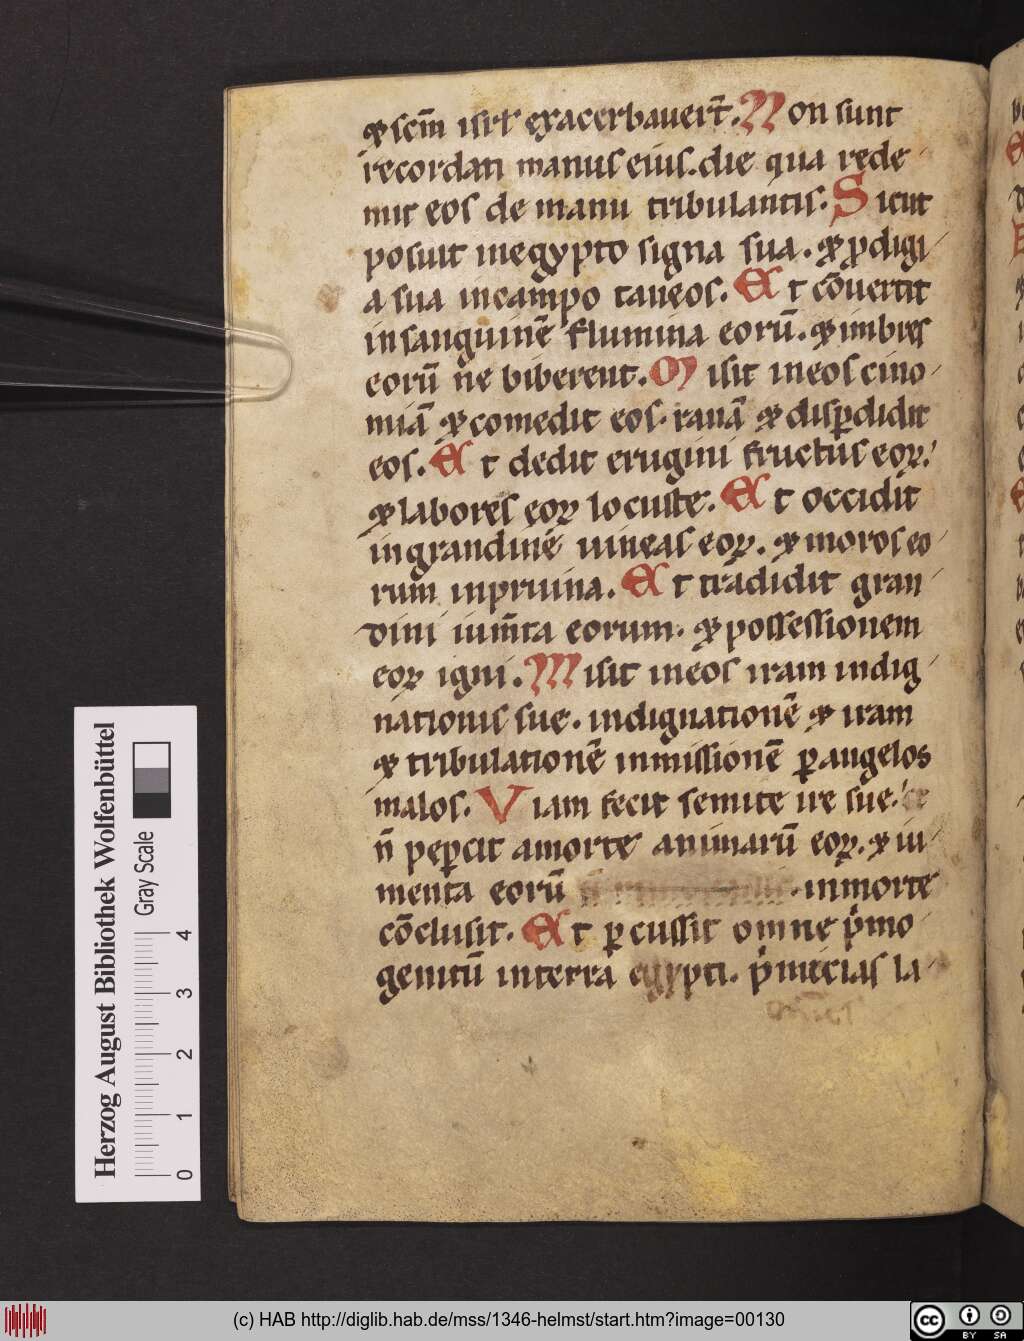 ⁊ scm̄ isrl̓ exacerbauer̄t. Non sunt
recordati manus eius. die qua rede
mit eos de manu tribulantis. Sicut
posuit in egypto signa sua. ⁊ ꝓdigi
a sua in campo taneos. Et cōuertit
in sanguinē flumina eorū. ⁊ imbres
eorū ne biberent. Misit in eos cino
miā ⁊ comedit eos. ranā ⁊ disꝑdidit
eos. Et dedit erugini fructus eoꝝ.
⁊ labores eoꝝ locuste. Et occidit
in grandine uineas eoꝝ. ⁊ moros eo
rum in pruina. Et tradidit gran
dini ium̄ta eorum. ⁊ possessionem
eoꝝ igni. Misit in eos iram indig
nationis sue. indignationē ⁊ iram
⁊ tribulationē inmissionē ꝑ angelos
malos. Viam fecit semite ire sue.
n̄ peꝑcit a morte animarū eoꝝ. ⁊ iu
menta eorū in morte
cōclusit. Et ꝑcussit omne pͥmo
genitū in terra egypti. pͥmicias la
Herzog August Bibliothek Wolfenbüttel
Gray Scale
0 1 2 3 4
(c) HAB http://diglib.hab.de/mss/1346-helmst/start.htm?image=00130
cc BY SA